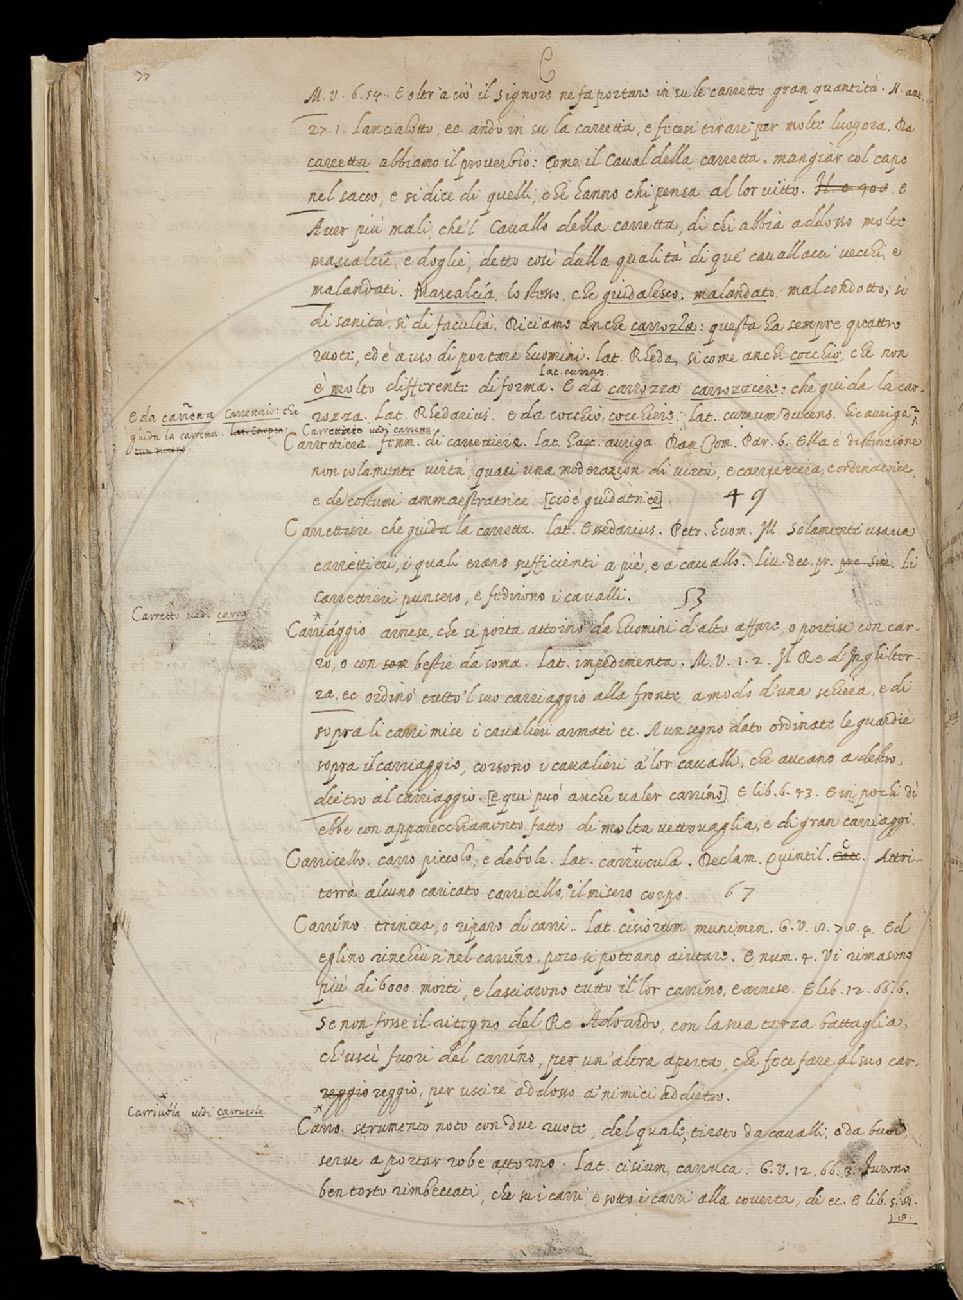 C
M. V. 6. 54. E oltr' a ciò il Signore ne fa portare in su le carrette gran quantità. N. ant.
27. 1. Lancialotto, ec. andò in su la carretta, e fecesi tirare per molte luogora. Da
carretta abbiamo il proverbio: Come il Caval della carretta, mangiar col capo
nel sacco, e si dice di quelli, che hanno chi pensa al lor vitto. e
Aver più mali, che 'l Cavallo della carretta, di chi abbia addosso molte
mascalcie, e doglie, detto così dalla qualità di que' cavallacci vecchi, e
malandati. Mascalcia, lo stesso, che guidalesco; malandato: malcondotto, sì
di sanità, sì di facultà. Diciamo anche carrozza: questa ha sempre quattro
ruote, ed è a uso di portare huomini. lat. Rheda, si come anche cocchio, che non
lat. currus.
è molto differente di forma. E da carrozza carrozziere: che guida la car-
rozza. Lat. Rhedarius. e da cocchio, cocchiere: lat. currum ducens. hic auriga,
E da carrena Carrenaio: che
guida la carrena.
Carrettaio vedi carrena
Carrettiera. femm. di carrettiere. Lat. haec auriga. Dan. Com. Par. 6. Ella è distinzione
non solamente virtù, quasi una moderazion di virtù, e carrettiera, e ordinatrice,
e de' costumi ammaestratrice [cioè guidatrice] 49
Carrettiere che guida la carretta. lat. Essedarius. Petr. huom. ill. Solamente usava
carrettieri, i quali erano sufficienti a piè, e a cavallo. Liv. dec. pr. Li
carrettieri punsero, e fedirono i cavalli. 53
Carretto vedi carro
Carriaggio arnese, che si porta attorno da huomini d'alto affare, o portisi con car-
ro, o con som bestie da soma. Lat. impedimenta. M. V. 1. 2. Il Re d'Inghilter-
ra, ec. ordinò tutto 'l suo carriaggio alla fronte, a modo d'una schiera, e di
sopra li carri mise i cavalieri armati ec. A un segno dato ordinate le guardie
sopra il carriaggio, corsono i cavalieri a' lor cavalli, che aveano a destro,
dietro al carriaggio. [e qui può anche valer carrino] E lib. 6. 43. E in pochi dì
ebbe con apparecchiamento fatto di molta vettovaglia, e di gran carriaggi.
Carricello. carro piccolo, e debole. Lat. carrucula. Declam. Quintil. C. Attri-
torrà alcuno caricato carricello il misero corpo. 67
Carrino. trincea, o riparo di carri. Lat. cisiorum munimen. G. V. 8. 78. 4. Ed
eglino rinchiusi nel carrino, poco si poteano aiutare. E num. 4. Vi rimasono
più di 6000. morti, e lasciarono tutto il lor carrino, e arnese. E lib. 12. 66. 6.
Se non fosse il ritegno del Re Adoardo, con la sua terza battaglia,
ch'uscì fuori del carrino, per un'altra aperta, che fece fare al suo car-
reggio reggio, per uscire addosso a' nimici addietro.
Carriuola vedi carrucola
Carro. strumento noto con due ruote, del quale, tirato da cavalli, o da buoi,
serve a portar robe attorno. Lat. cisium, carruca. G. V. 12. 66. 3. Furono
ben tosto rimbeccati, che su i carri, e sotto i carri alla coverta, di ec. E lib. 5. 81.